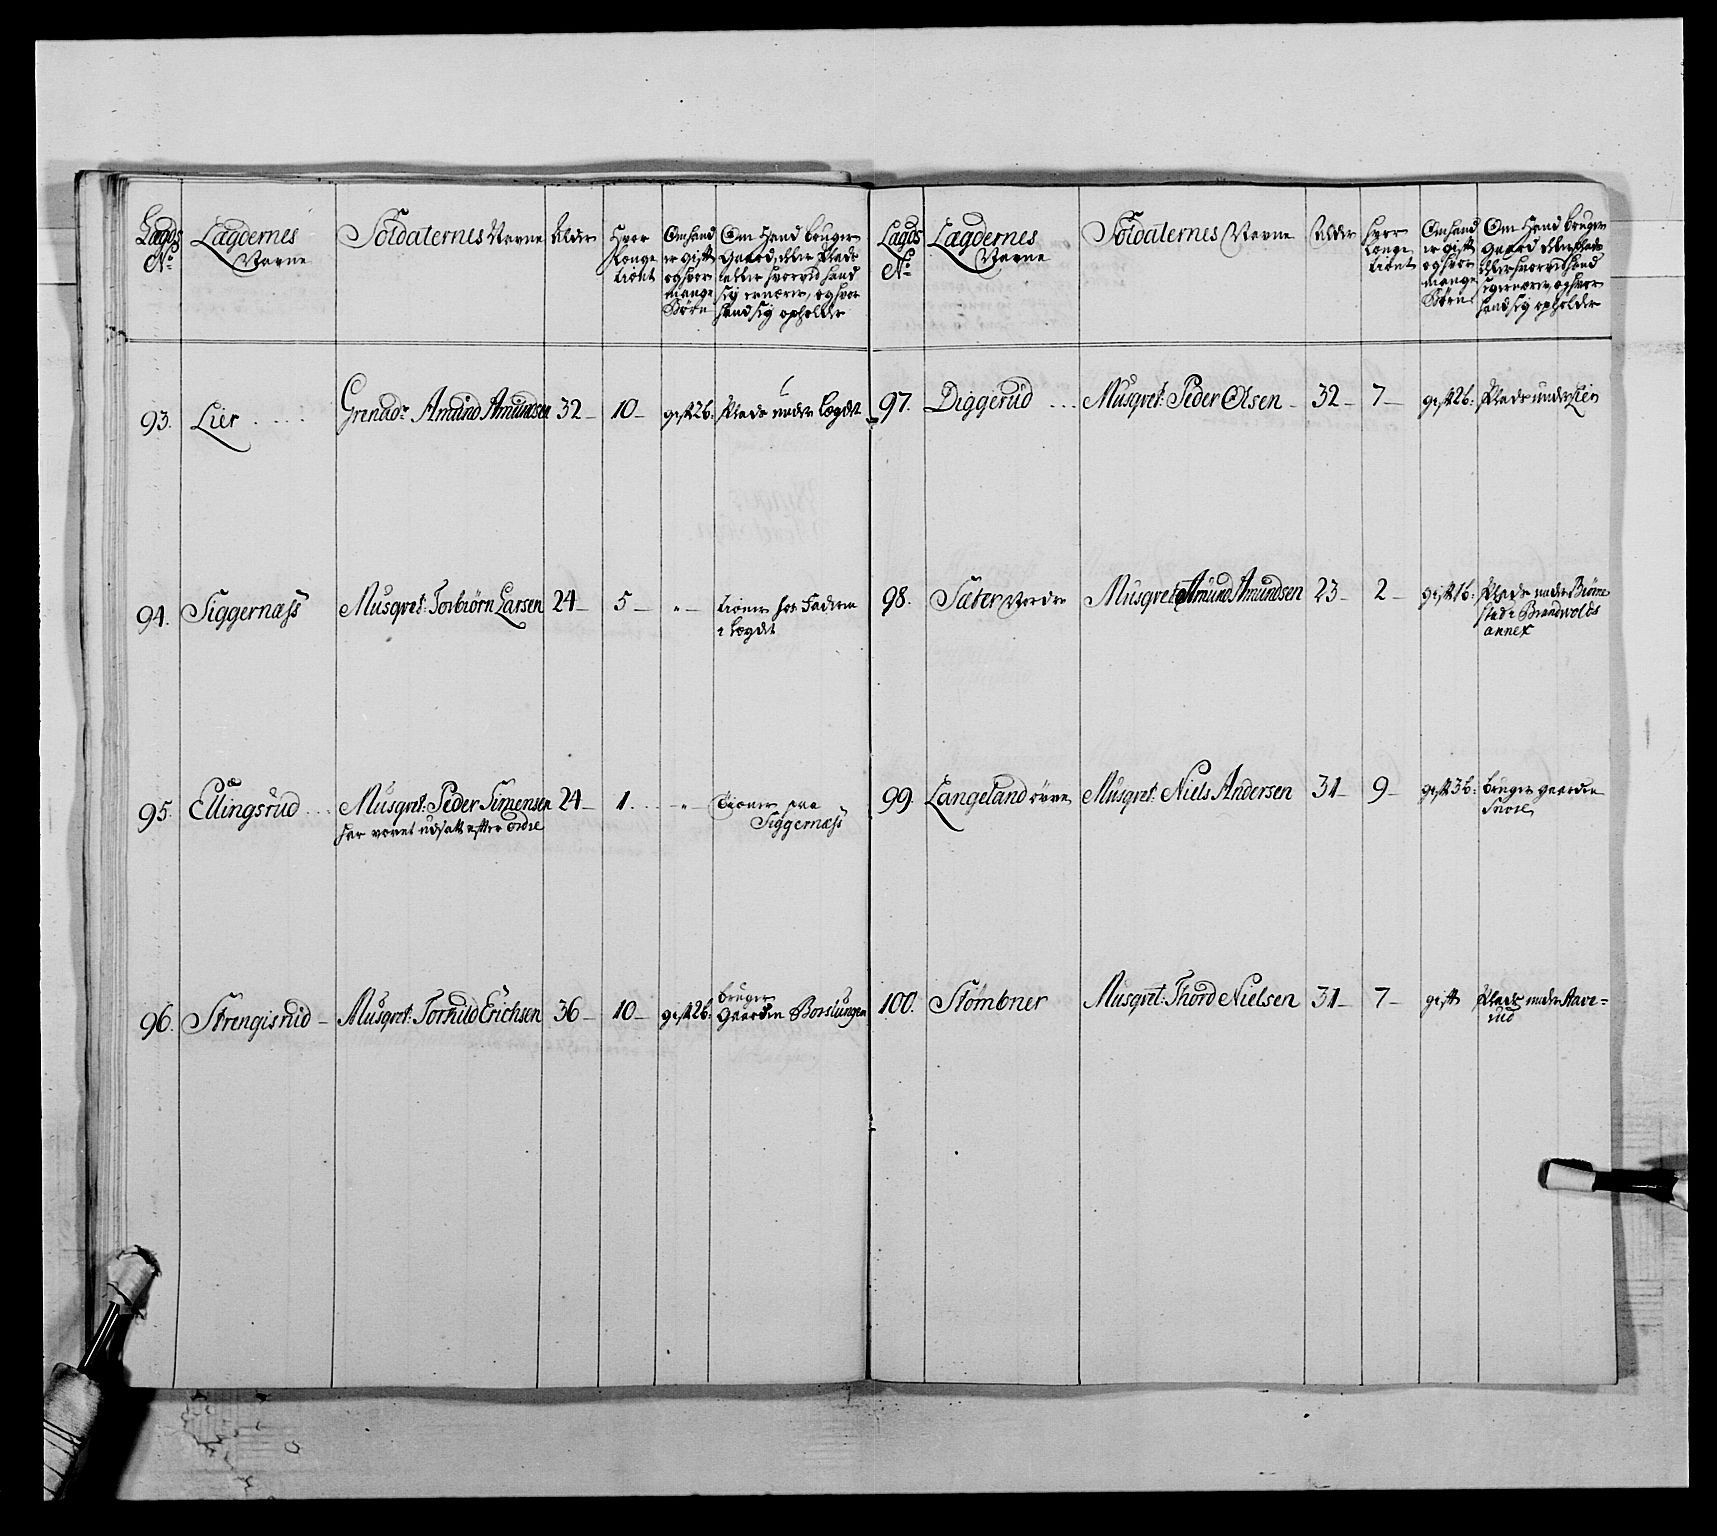 Lægds No
Lægdernes Navne
Soldaternes Navne
Alder
Hvor longe tiént
Om hand er gift og hvor mange Börn
Om Hand bruger Gaard eller Plads eller hvorved hand sig ernærer, og hvor hand sig opholder
93. Lier . . . . . Grenadr Amund Amundsen 32 — 10 — gift 2 b: Plads under Lægdet
94. Siggernæss Musqvet: Torbiörn Larsen 24 — 5 — " — tiener hos Faderen
i Lægdet
95. Ellingsrud . . . Musqvet: Peder Simensen 24 — 1 . . . " — tiener paa
har været udsatt efter ordre Siggernæss
96. Strengisrud — Musqvet: Torkild Erichsen 36 — 10 — gift 2 b: bruger
Gaarden Borslungen
Lægds No
Lægdernes Navne
Soldaternes Navne
Alder
Hvor Longe tiént
Om hand er gift og hvor mange Börn
Om Hand bruger Gaard eller Plads eller hvorved hand sig ernærer, og hvor hand sig opholder
97. Diggerud . . . Musqvet: Peder Olsen — 32 — 7 — gift 2 b: Plads under Lier
98. Sæter Nordre Musqvet: Amund Amundsen 23 — 2 — gift 1 b: Plads under
i Brandvolds
annex
99. Langeland övre Musqvet: Niels Andersen 31 — 9 — gift 3 b: bruger gaarden
100. Stömbner Musqvet: Thord Nielsen 31 — 7 — gift Plads under Aave=
rud